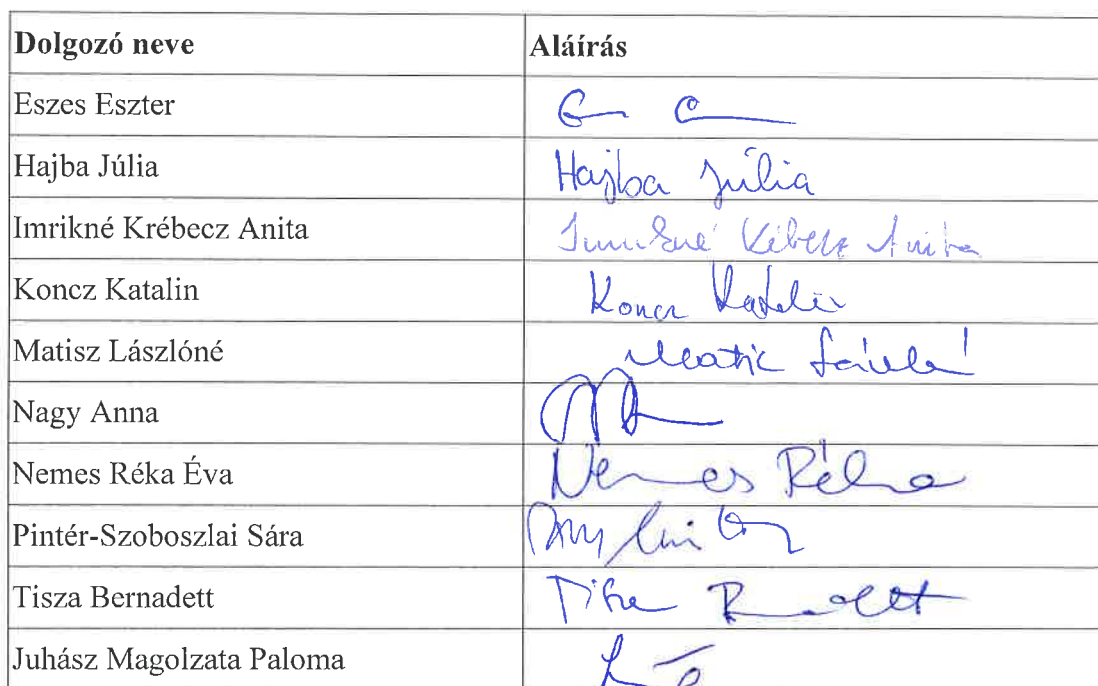 Dolgozó neve Aláírás
Eszes Eszter
Hajba Júlia Hajba Júlia
Imrikné Krébecz Anita Anita
Koncz Katalin Koncz Katalin
Matisz Lászlóné
Nagy Anna
Nemes Réka Éva Nemes Réka
Pintér-Szoboszlai Sára
Tisza Bernadett
Juhász Magolzata Paloma